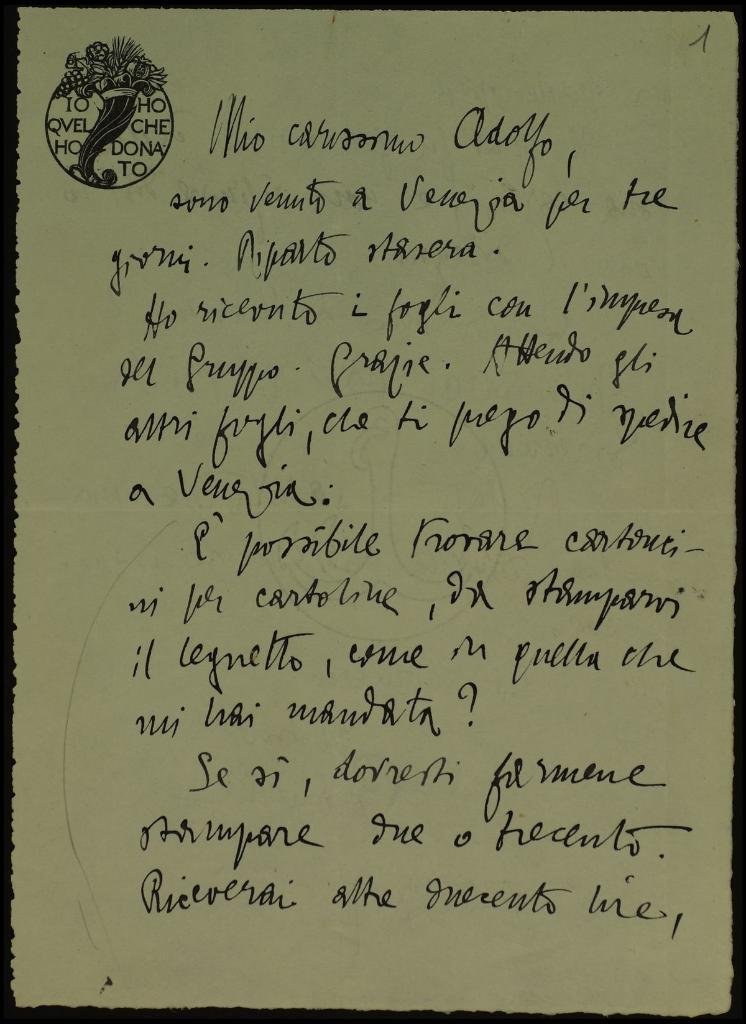 1
IO HO
QVEL CHE
HO DONA
TO
Mio carissimo Adolfo,
sono venuto a Venezia per tre
giorni. Riparto stasera.
Ho ricevuto i fogli con l'impresa
del Gruppo. Grazie. Attendo gli
altri fogli, che ti prego di spedire
a Venezia.
È possibile trovare cartonci-
ni per cartoline, da stamparvi
il legnetto, come in quella che
mi hai mandata?
Se sì, dovresti farmene
stampare due o trecento.
Riceverai altre duecento lire,